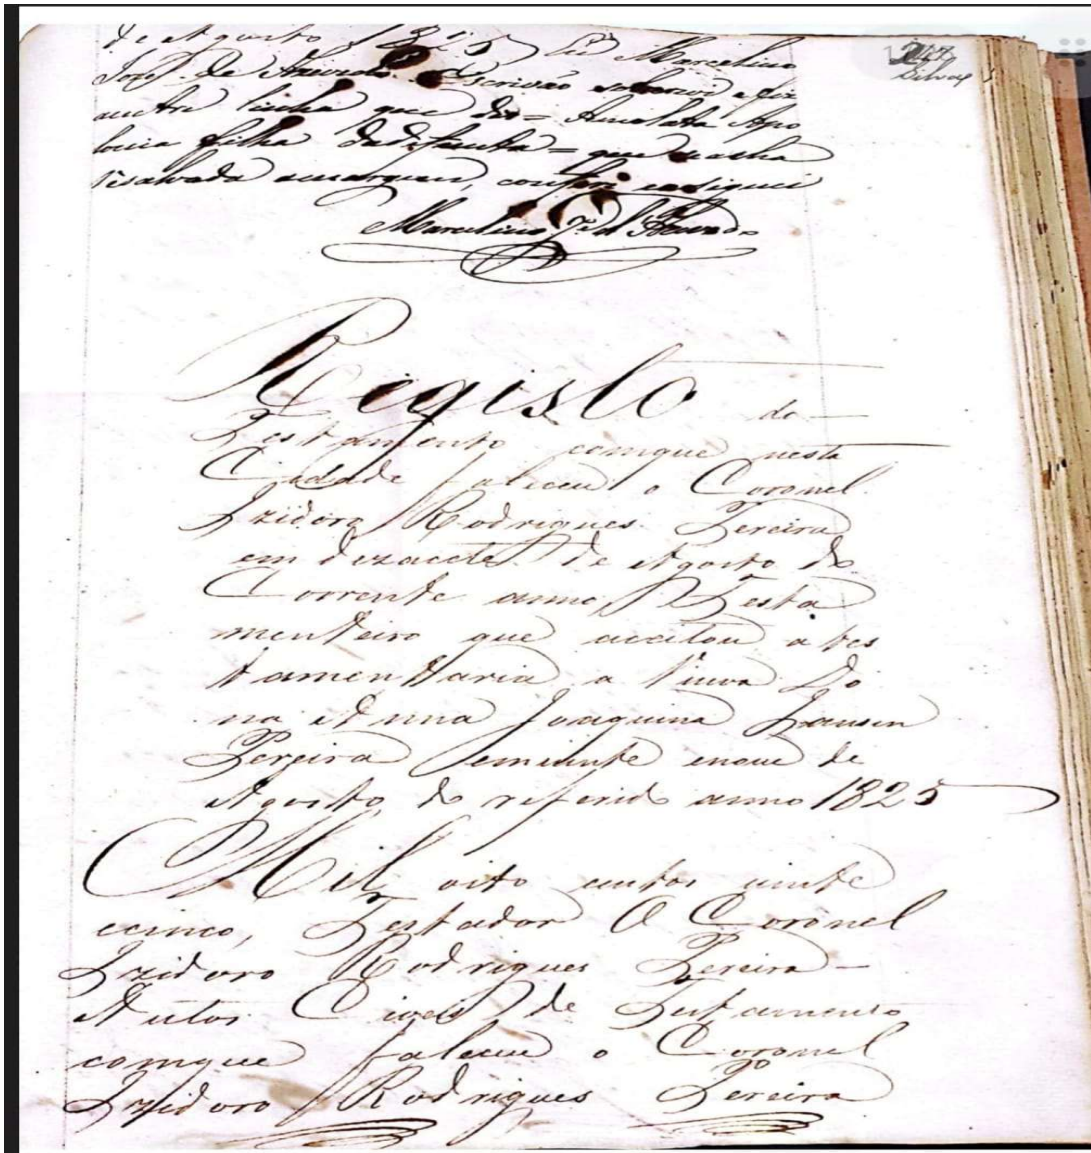 de Agosto 1825 Eu Marcelino
Joze de Azevedo Escrivão sobscrevi e fiz
entre linha que diz = Amolata Apo
lonia filha da defunta = que vae
resalvada amargem, conferi e asignei
Marcelino Je de Azevedo
247
Silva
Registo do
Testamento comque nesta
Cidade faleceu o Coronel
Izidoro Rodrigues Pereira
em dezacete de Agosto do
Corrente anno, Testa
menteiro que aceitou a tes
tamentaria a Viuva Do
na Anna Joaquina Jansen
Pereira em vinte enove de
Agosto do referido anno 1825
Mil oito centos vinte
ecinco, Testador O Coronel
Izidoro Rodrigues Pereira
Autos Civeis de Testamento
comque faleceu o Coronel
Izidoro Rodrigues Pereira